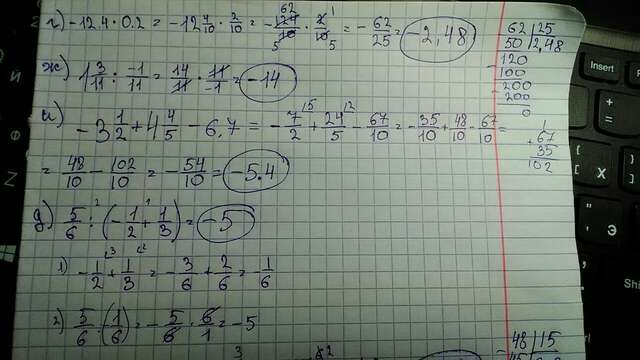 г) -12.4 · 0.2 = -12 4/10 · 2/10 = -124/10 · 2/10 = -62/25 = -2,48
62 | 25
50 | 2,48
-120
100
-200
200
0
ж) 1 3/11 : -1/11 = 14/11 · 11/-1 = -14
и) -3 1/2 + 4 4/5 - 6,7 = -7/2 + 24/5 - 67/10 = -35/10 + 48/10 - 67/10 =
= 48/10 - 102/10 = -54/10 = -5.4
1
+67
35
102
д) 5/6 : (-1/2 + 1/3) = -5
1) -1/2 + 1/3 = -3/6 + 2/6 = -1/6
2) 5/6 : (-1/6) = -5/6 · 6/1 = -5
48 | 15
Insert
+
=
{
[
Х
"
'
Э
Shi